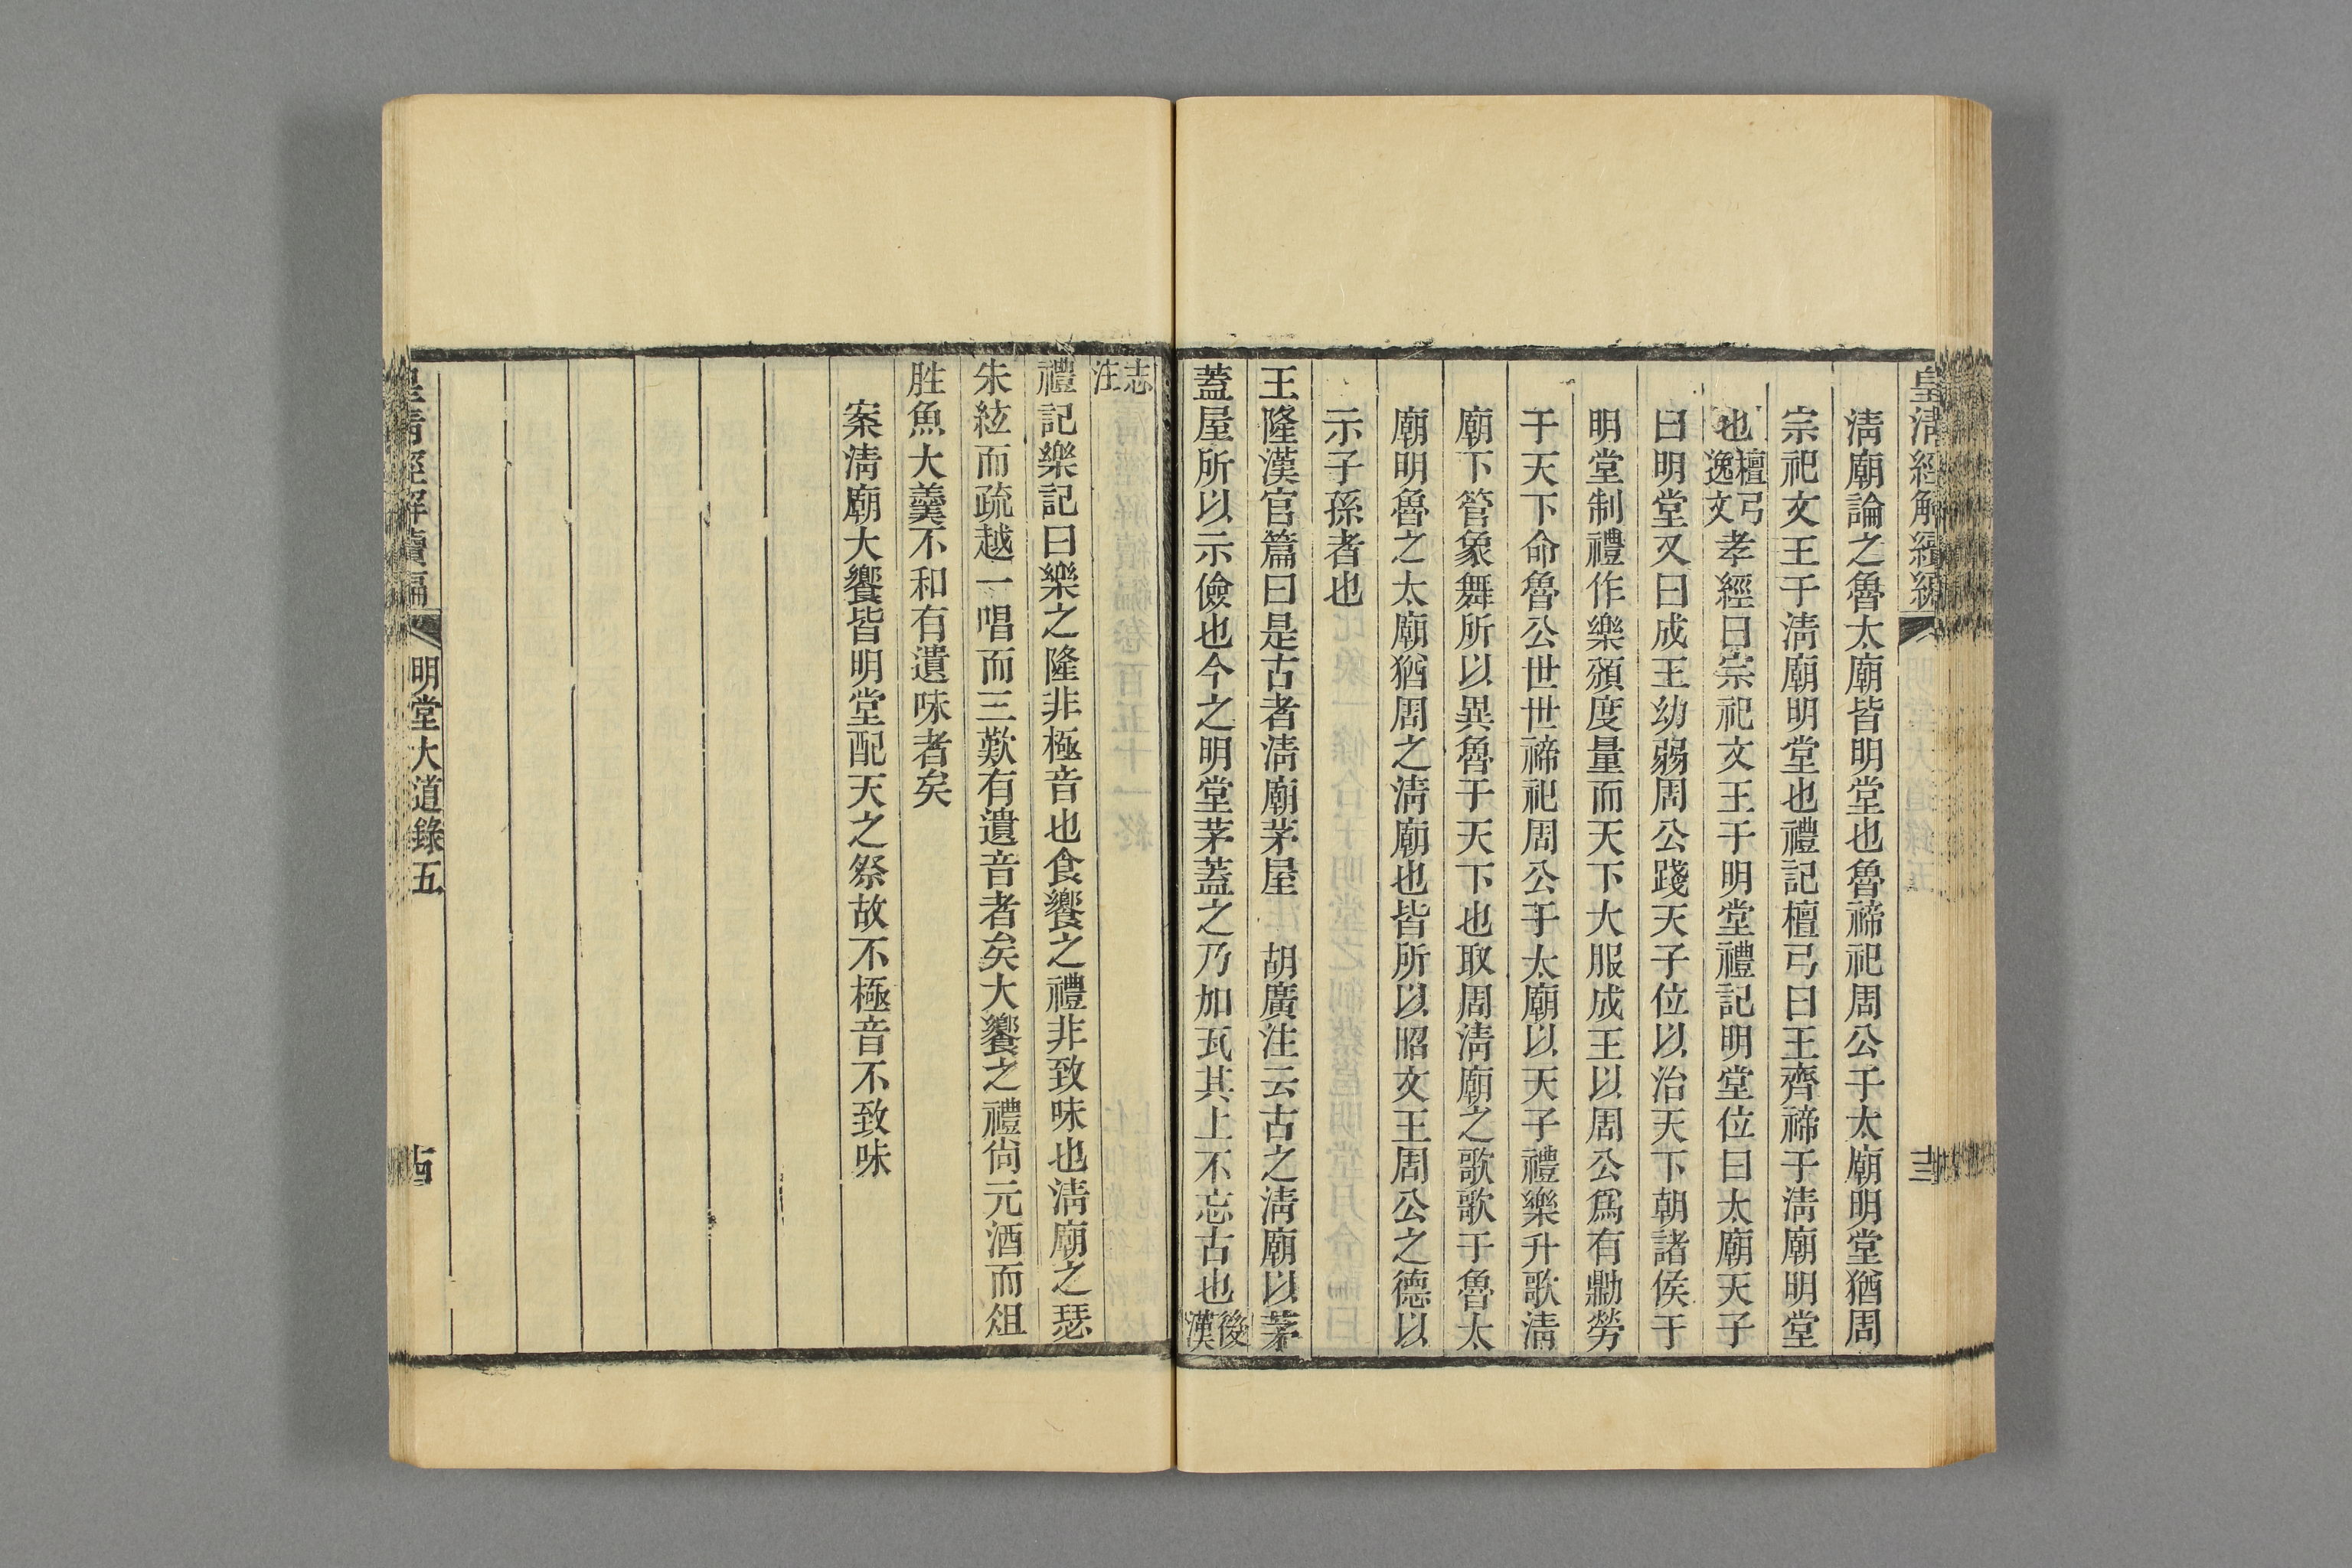 皇清經解續編
十三
清廟論之魯太廟皆明堂也魯禘祀周公于太廟明堂猶周
宗祀文王于清廟明堂也禮記檀弓曰王齊禘于清廟明堂
也檀弓逸文孝經曰宗祀文王于明堂禮記明堂位曰太廟天子
曰明堂又曰成王幼弱周公踐天子位以治天下朝諸侯于
明堂制禮作樂頒度量而天下大服成王以周公爲有勳勞
于天下命魯公世世禘祀周公于太廟以天子禮樂升歌清
廟下管象舞所以異魯于天下也取周清廟之歌歌于魯太
廟明魯之太廟猶周之清廟也皆所以昭文王周公之德以
示子孫者也
王隆漢官篇曰是古者清廟茅屋 胡廣注云古之清廟以茅
蓋屋所以示儉也今之明堂茅蓋之乃加瓦其上不忘古也後漢
志注
禮記樂記曰樂之隆非極音也食饗之禮非致味也清廟之瑟
朱絃而疏越一唱而三歎有遺音者矣大饗之禮尙元酒而俎
胜魚大羹不和有遺味者矣
案清廟大饗皆明堂配天之祭故不極音不致味
皇清經解續編
明堂大道錄五
十四